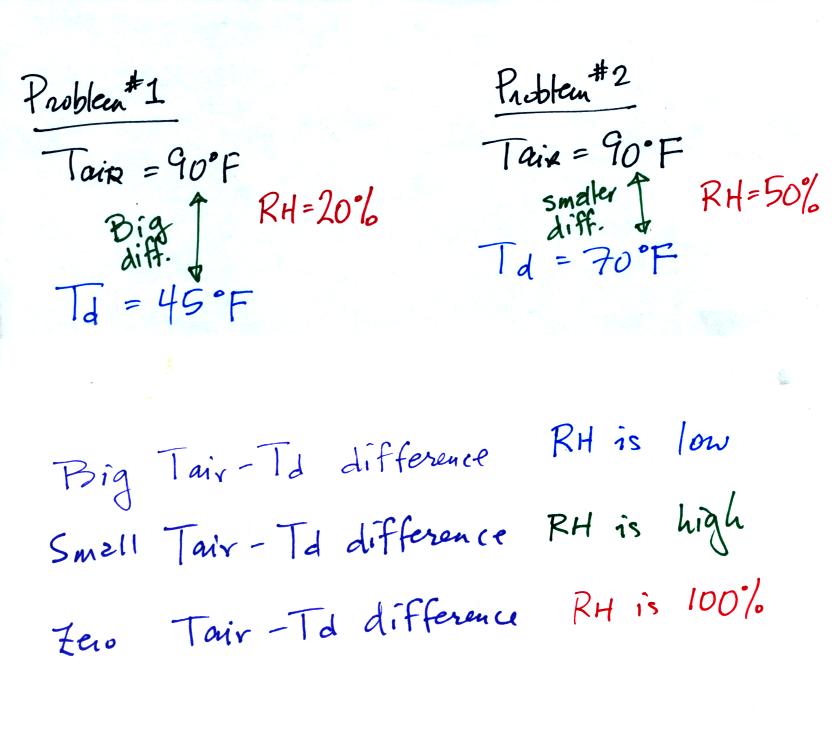 Problem #1
Tair = 90°F
Big diff.
RH=20%
Td = 45°F
Problem #2
Tair = 90°F
smaller diff.
RH=50%
Td = 70°F
Big Tair-Td difference RH is low
Small Tair-Td difference RH is high
Zero Tair-Td difference RH is 100%